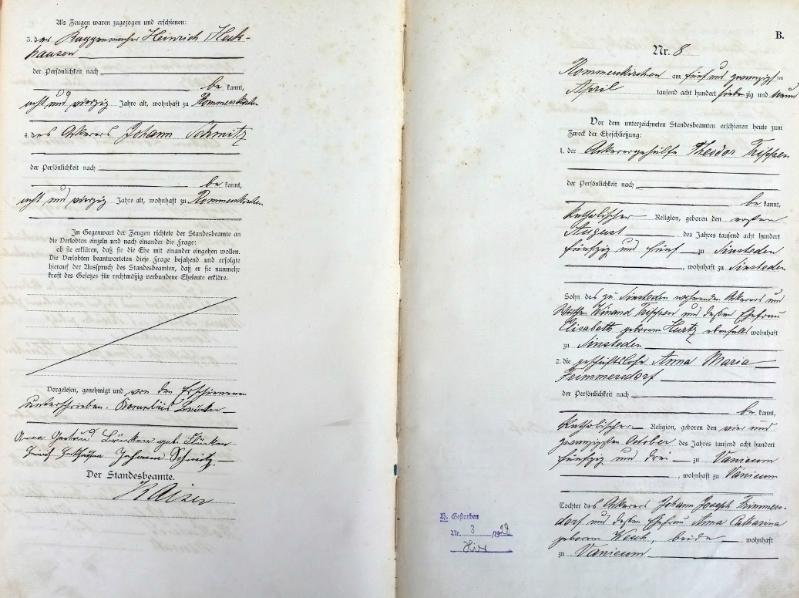 Als Zeugen waren zugezogen und erschienen:
3. der Heinrich Heck-
hausen
der Persönlichkeit nach
be kannt,
acht und vierzig Jahre alt, wohnhaft zu Rommerskirchen
4. der Ackerer Johann Schmitz
der Persönlichkeit nach
be kannt,
acht und vierzig Jahre alt, wohnhaft zu Rommerskirchen
In Gegenwart der Zeugen richtete der Standesbeamte an
die Verlobten einzeln und nach einander die Frage:
ob sie erklären, daß sie die Ehe mit einander eingehen wollen.
Die Verlobten beantworteten diese Frage bejahend und erfolgte
hierauf der Ausspruch des Standesbeamten, daß er sie nunmehr
kraft des Gesetzes für rechtmäßig verbundene Eheleute erkläre.
Vorgelesen, genehmigt und von den Erschienenen
unterschrieben.
Anna Gertrud geb.
Johann Schmitz
Der Standesbeamte.
Kaiser
B.
Nr. 8
Rommerskirchen am fünf und zwanzigsten
April tausend acht hundert siebenzig und neun
Vor dem unterzeichneten Standesbeamten erschienen heute zum
Zweck der Eheschließung:
1. der Ackerergehülfe Theodor
der Persönlichkeit nach
be kannt,
katholischer Religion, geboren den ersten
August des Jahres tausend acht hundert
fünfzig und fünf zu Sinsteden
, wohnhaft zu Sinsteden
Sohn des zu Sinsteden wohnenden Ackerers und
und dessen Ehefrau
Elisabeth geborene Kurtz ebenfalls wohnhaft
zu Sinsteden
2. die geschäftslose Anna Maria
Frimmersdorf
der Persönlichkeit nach
be kannt,
katholischer Religion, geboren den vier und
zwanzigsten October des Jahres tausend acht hundert
fünfzig und drei zu Vanicum
, wohnhaft zu Vanicum
Tochter des Ackerers Johann Joseph Frimmers-
dorf und dessen Ehefrau Anna Catharina
geborene beide wohnhaft
zu Vanicum
Gestorben
Nr. 3
Hier